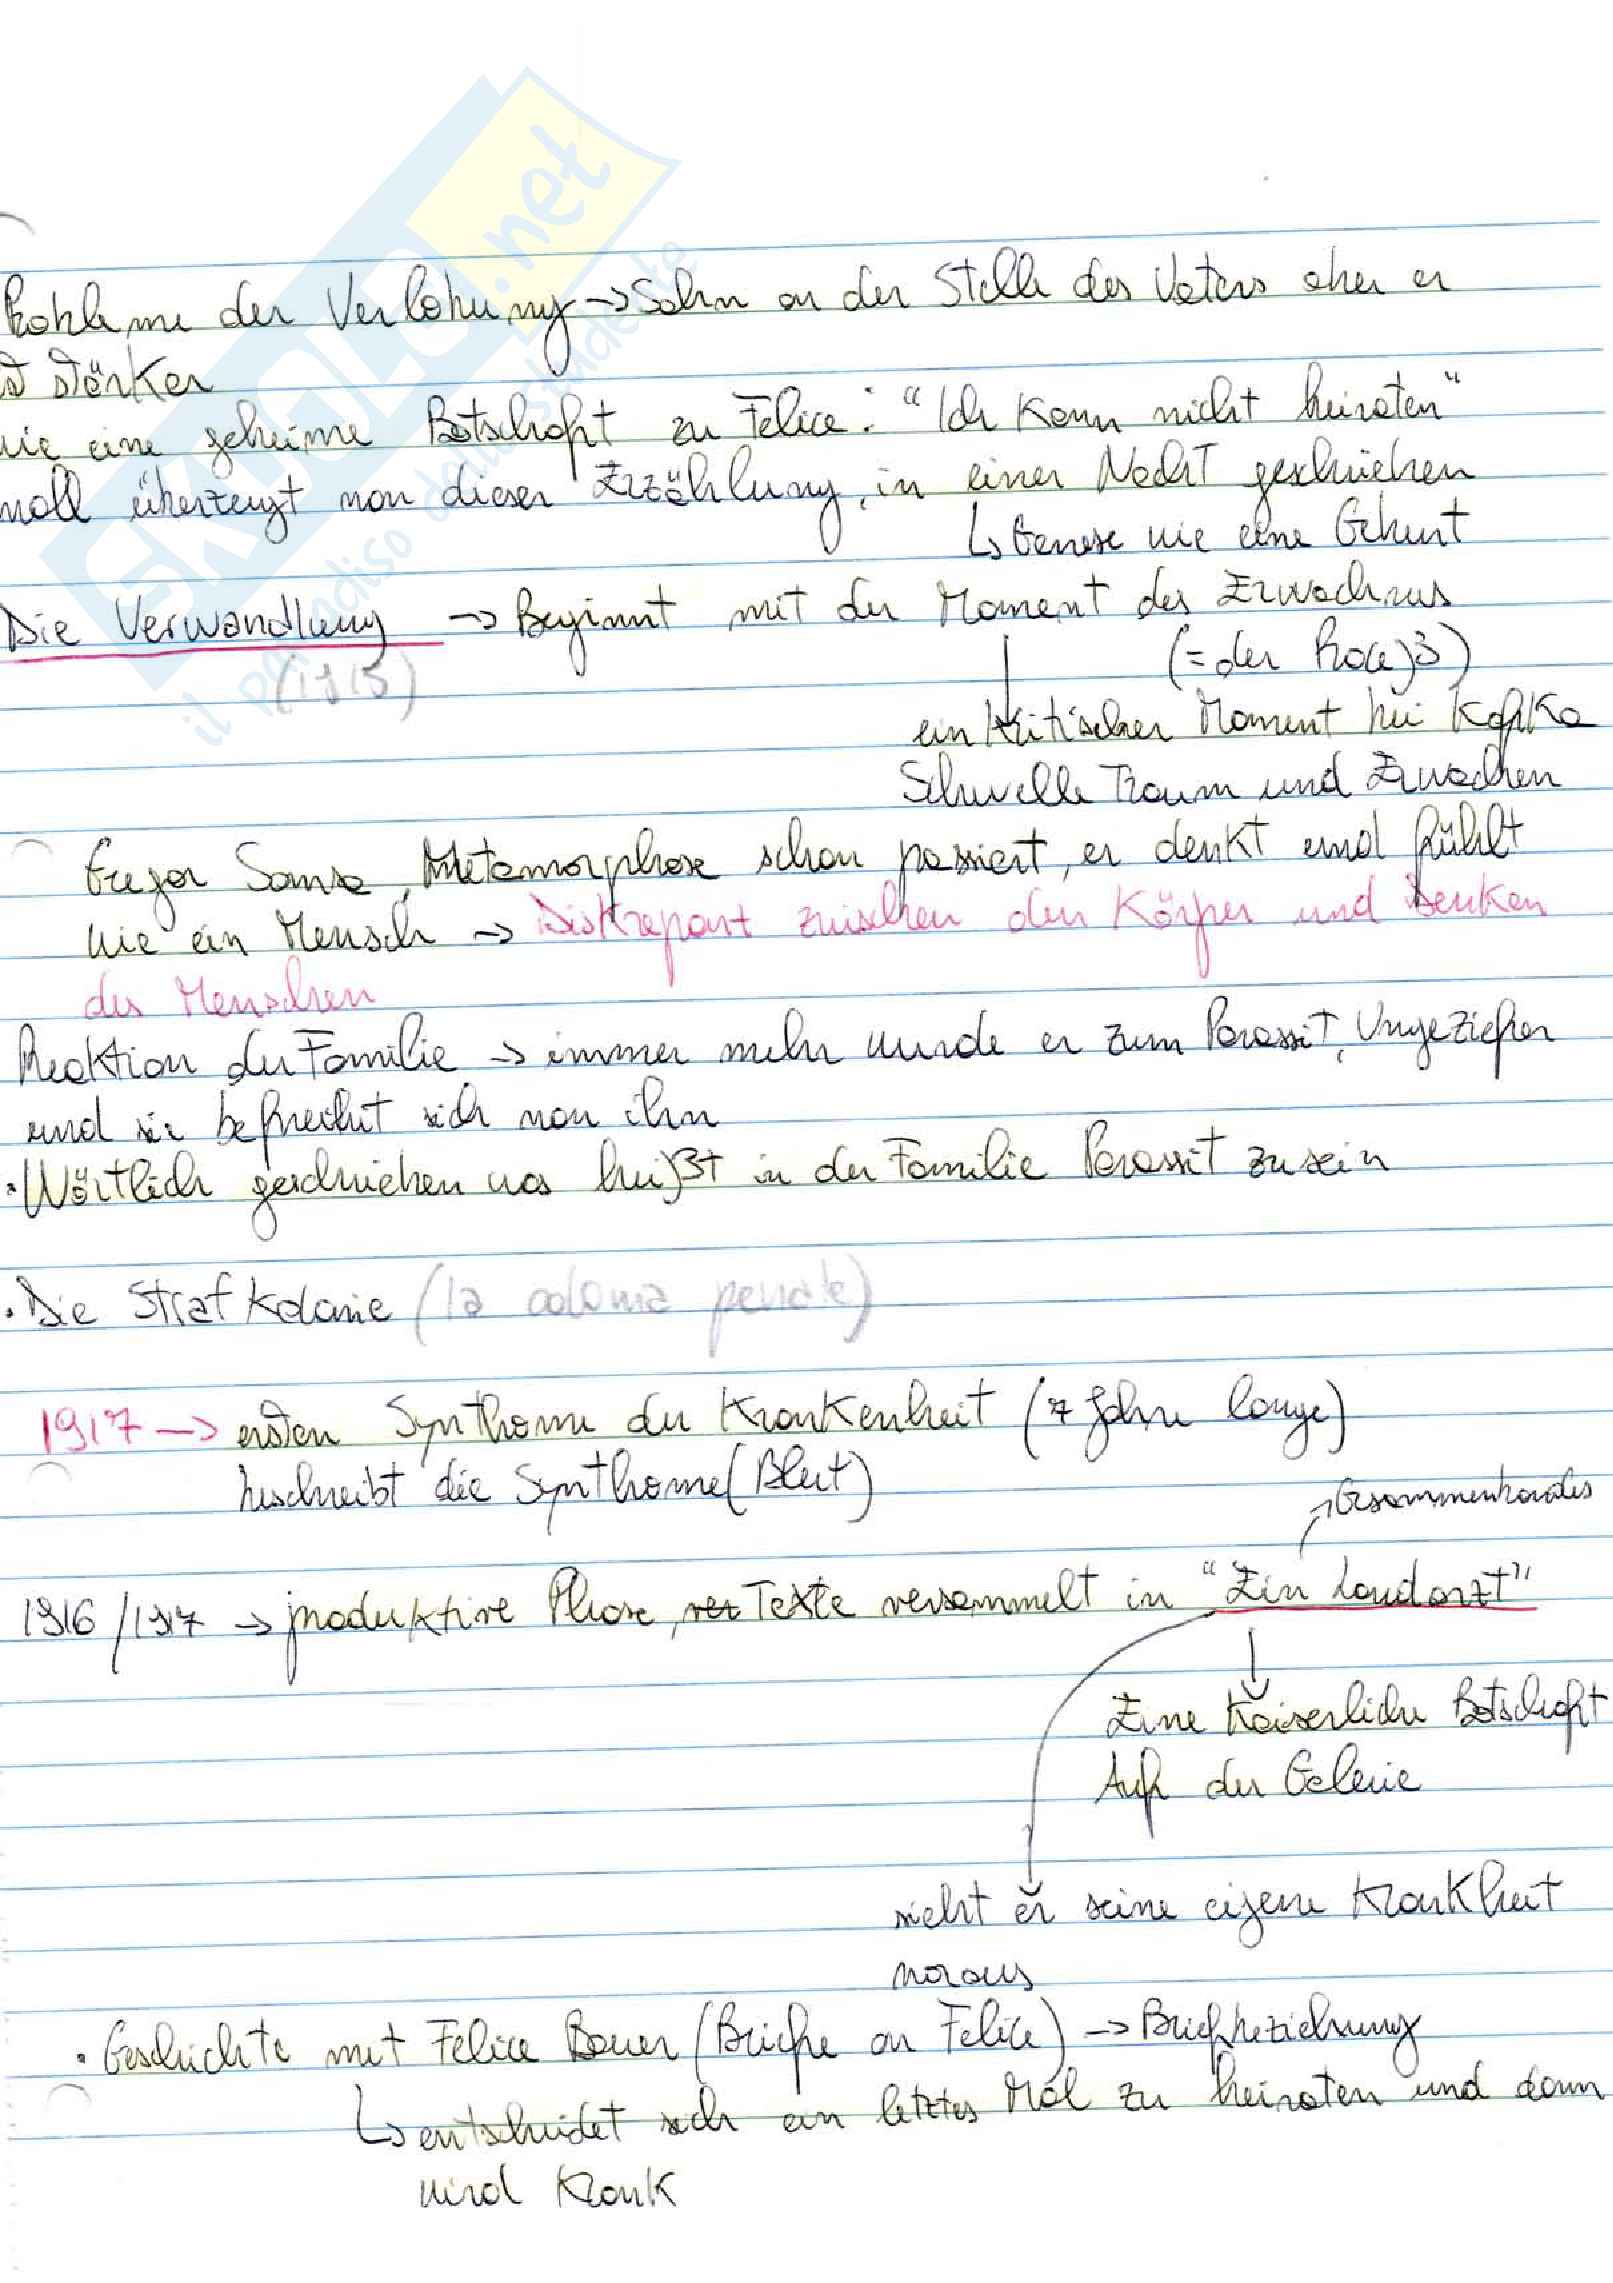 SKUOLA.net
il paradiso dello studente
Probleme der Verlobung → Sohn an der Stelle des Vaters aber er
ist stärker
wie eine geheime Botschaft zu Felice: "Ich kann nicht heiraten"
voll überzeugt von dieser Erzählung, in einer Nacht geschrieben
↳ Genese wie eine Geburt
Die Verwandlung → Beginnt mit der Moment des Erwachens
(1915)
(= der Prozeß)
ein kritischer Moment bei Kafka
Schwelle Traum und Erwachen
Gregor Samsa, Metamorphose schon passiert, er denkt und fühlt
wie ein Mensch → Diskrepant zwischen den Körper und Denken
des Menschen
Reaktion der Familie → immer mehr wurde er zum Parassit, Ungeziefer
und sie befreihit sich von ihn
• Wörtlich geschrieben was heißt in der Familie Parassit zu sein
• Die Strafkolonie (la colonia penale)
1917 → ersten Synthome der Krankenheit (7 Jahre lange)
beschreibt die Synthome (Blut)
1916/1917 → produktive Phase, ver Texte versammelt in "Ein Landarzt"
Eine Kaiserliche Botschaft
Auf der Galerie
sieht er seine eigene Krankheit
voraus
• Geschichte mit Felice Bauer (Briefe an Felice) → Briefbeziehung
↳ entscheidet sich ein letztes Mal zu heiraten und dann
wird krank